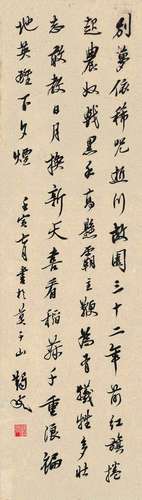 別夢依稀咒逝川故園三十二年前紅旗捲
起農奴戟黑手高懸霸主鞭為有犧牲多壯
志敢教日月換新天喜看稻菽千重浪遍
地英雄下夕煙 壬寅七月書於莫干山